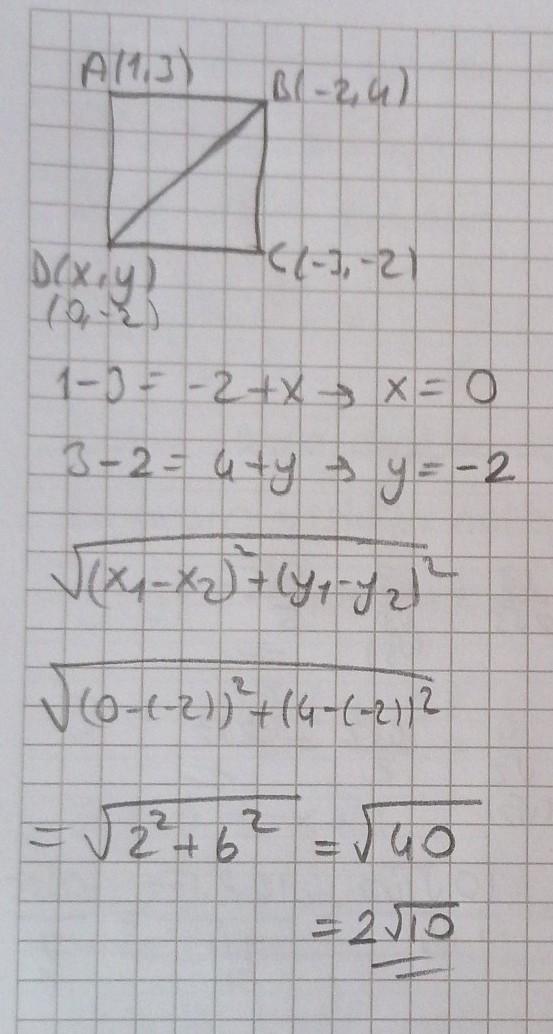 A(1,3) B(-2,4)
D(x,y) C(-3,-2)
(0,-2)
1-3 = -2+x → x = 0
3-2 = 4+y → y = -2
√(x₁-x₂)²+(y₁-y₂)²
√(0-(-2))²+(4-(-2))²
= √2²+6² = √40
= 2√10